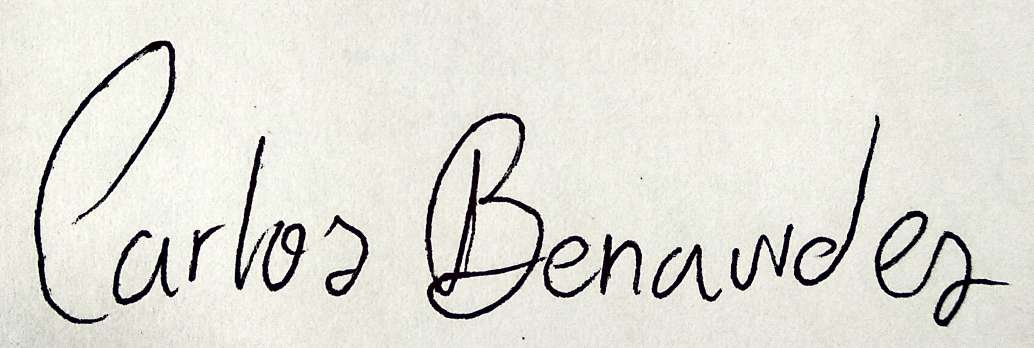 Carlos Benavides